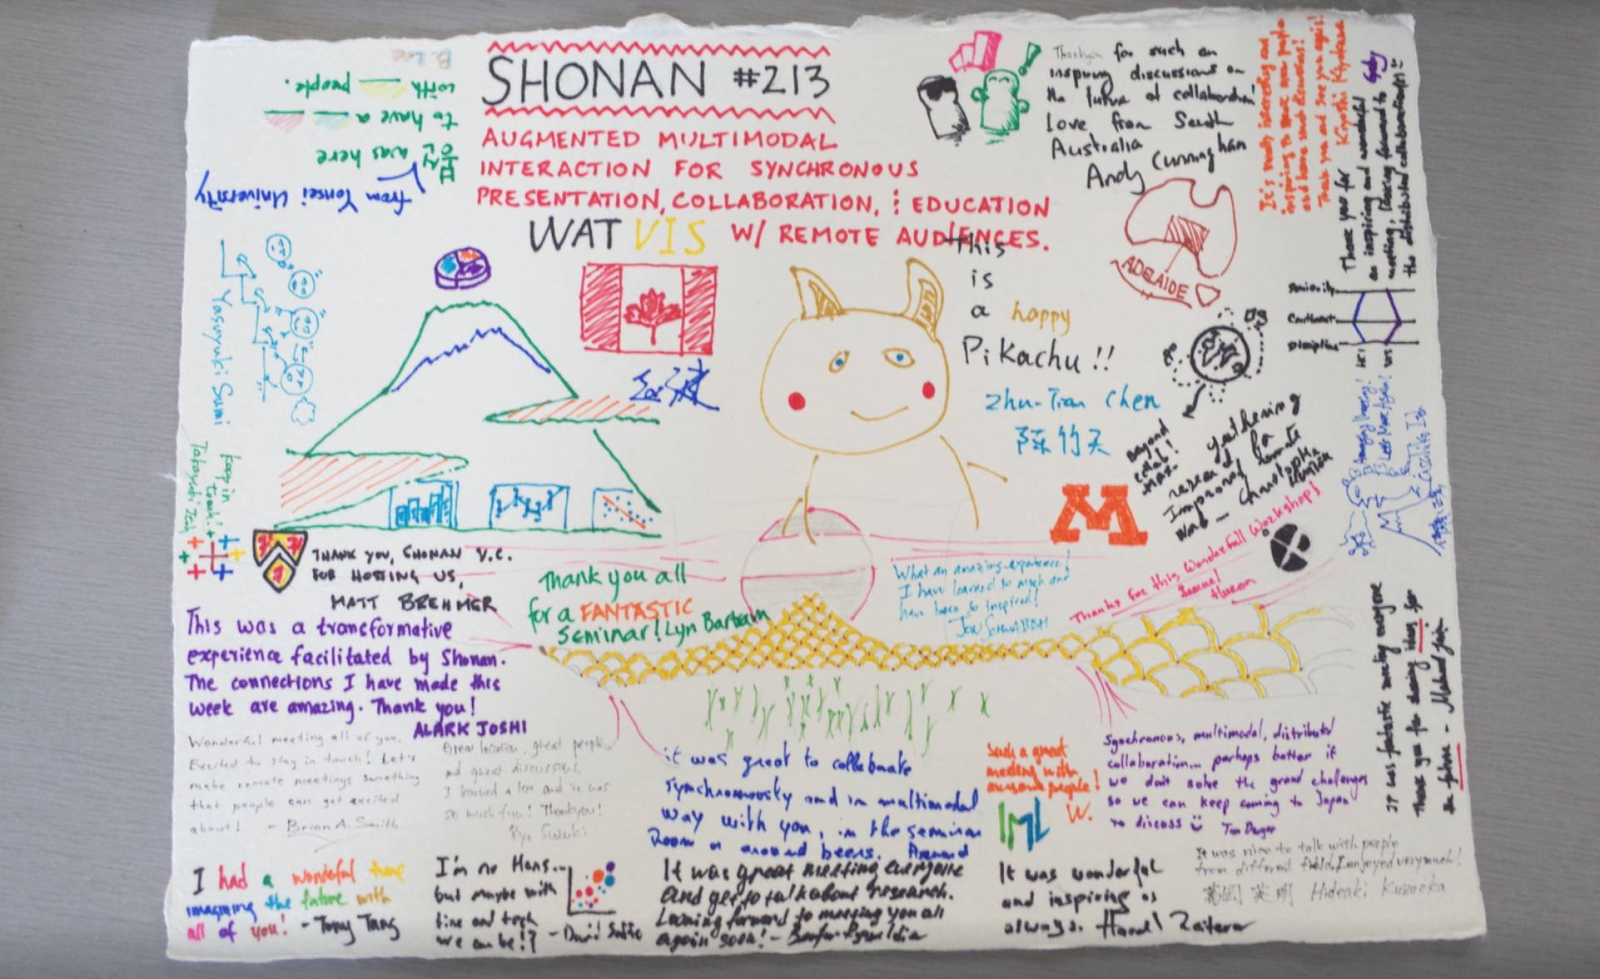 SHONAN #213
AUGMENTED MULTIMODAL
INTERACTION FOR SYNCHRONOUS
PRESENTATION, COLLABORATION, & EDUCATION
W/ REMOTE AUDIENCES.
WATVIS
with ___ people.
to have a
분산 was here
from Yonsei University
Thank you for such an
inspiring discussions on
the future of collaboration!
Love from South
Australia
Andy Cunningham
ADELAIDE
It's really interesting and
inspiring to meet new people
and have such discussions!
Thank you and see you again!
Kiyoshi Kiyokawa
Thank you for
an inspiring and wonderful
meeting, looking forward to
the distributed collaborations!
Seniority
Continent
Discipline
this
is
a happy
Pikachu!!
Zhu-Tian Chen
陈竹天
Yasuyuki Sumi
keep in
touch!
Takayuki Itoh
THANK YOU, SHONAN V.C.
FOR HOSTING US,
MATT BREHMER
Thank you all
for a FANTASTIC
Seminar! Lyn Bartram
What an amazing experience!
I have learned so much and
have been so inspired!
JON SCHWABISH
Beyond
gathering
for
research
Improving remote
M
Thanks for this wonderfull workshops
Samuel
Huron
This was a transformative
experience facilitated by Shonan.
The connections I have made this
week are amazing. Thank you!
ALARK JOSHI
Wonderful meeting all of you.
Excited to stay in touch! Let's
make remote meetings something
that people can get excited
about! - Brian A. Smith
Great location, great people
and great discussions.
I learned a lot and it was
so much fun! Thank you!
Ryo Suzuki
it was great to collaborate
synchronously and in multimodal
way with you, in the seminar
Room or around beers.
Such a great
meeting with
awesome people!
W.
Synchronous, multimodal, distributed
collaboration... perhaps better if
we don't solve the grand challenges
so we can keep coming to Japan
to discuss
Tim Dwyer
It was fantastic meeting everyone
Thank you for sharing ideas for
the future - Mahmood Jasim
I had a wonderful time
imagining the future with
all of you! - Tony Tang
I'm no Hans...
but maybe with
time and tech
we can be!? - David Saffo
It was great meeting everyone
and get to talk about research.
Looking forward to meeting you all
again soon!
It was wonderful
and inspiring as
always. Harald Reiterer
It was nice to talk with people
from different field, I enjoyed very much!
葛岡 英明 Hideaki Kuzuoka